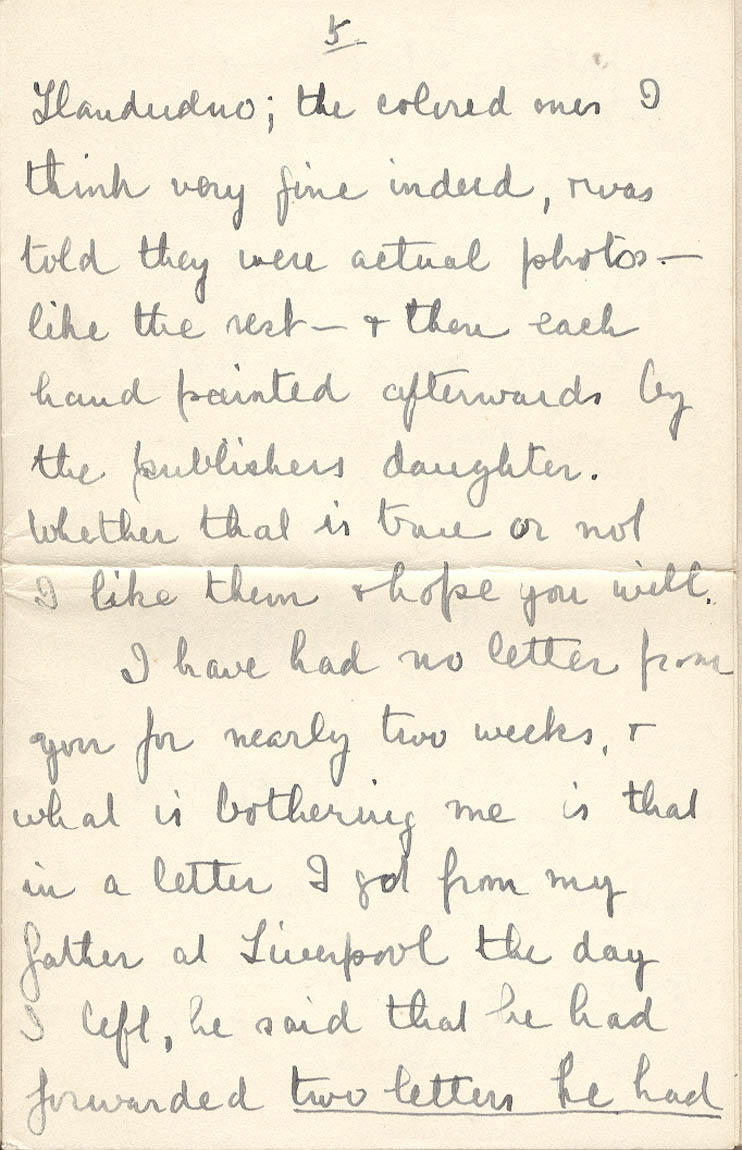 5
Llandudno; the colored ones I
think very fine indeed, & was
told they were actual photos —
like the rest — & then each
hand painted afterwards by
the publishers daughter.
Whether that is true or not
I like them & hope you will.
I have had no letter from
you for nearly two weeks, &
what is bothering me is that
in a letter I got from my
father at Liverpool the day
I left, he said that he had
forwarded two letters he had